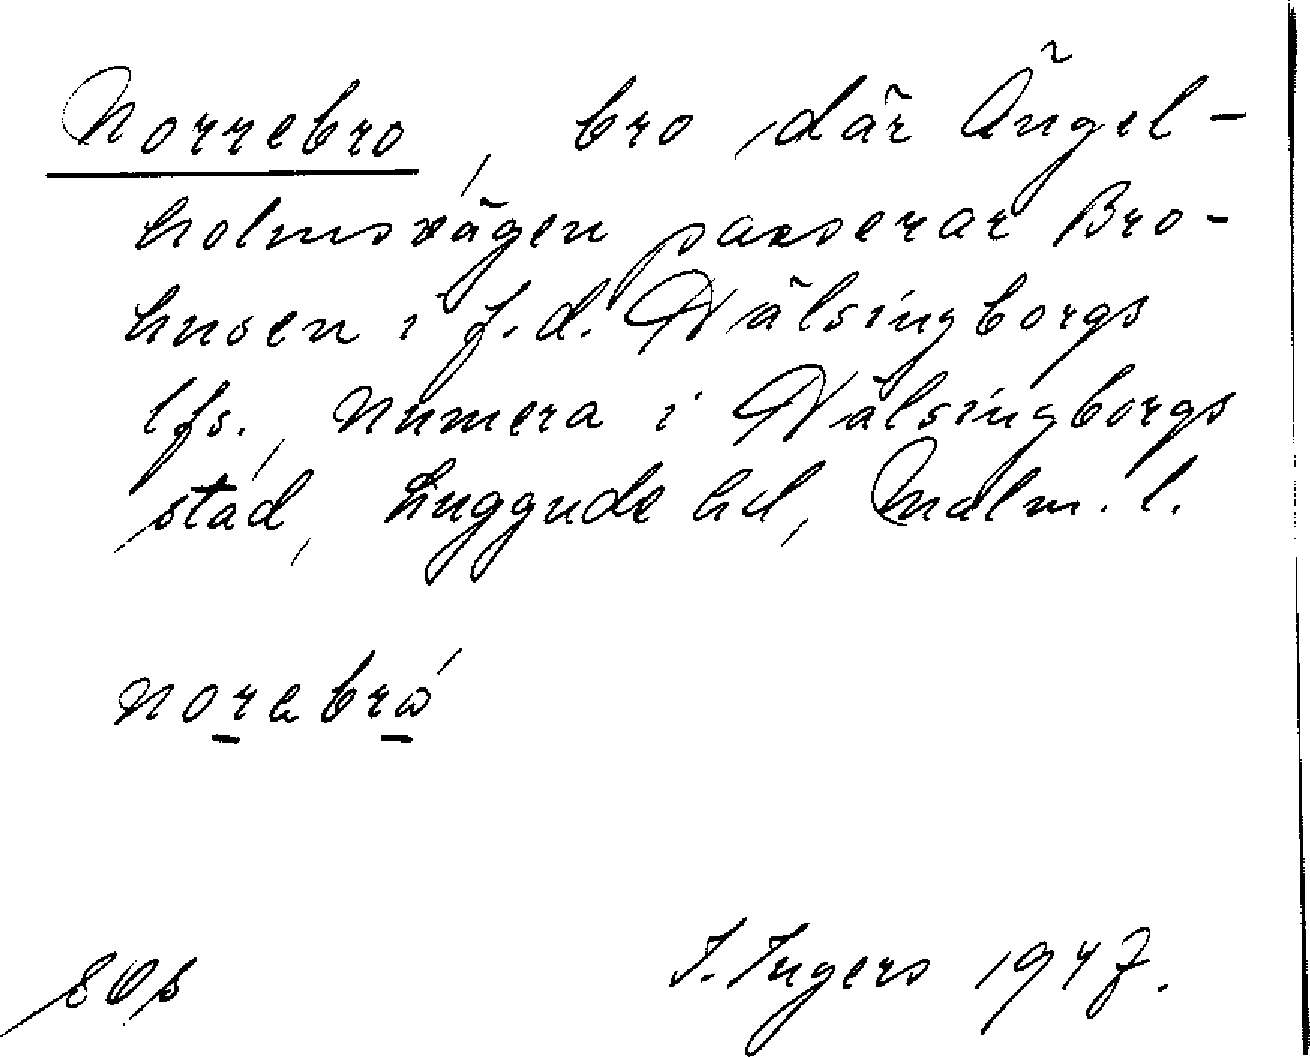 Norrebro, bro där Ängel-
holmsvägen passerar Bro-
husen i f.d. Hälsingborgs
lfs., numera i Hälsingborgs
stad, Luggude hd, Malm. l.
norabró
I. Ingers 1947.